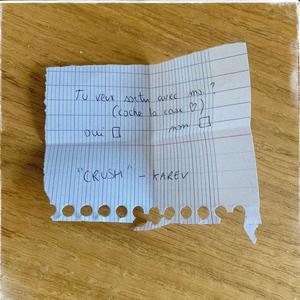 Tu veux sortir avec moi ?
(coche la case ♡)
oui □ non □
"CRUSH" - KAREV